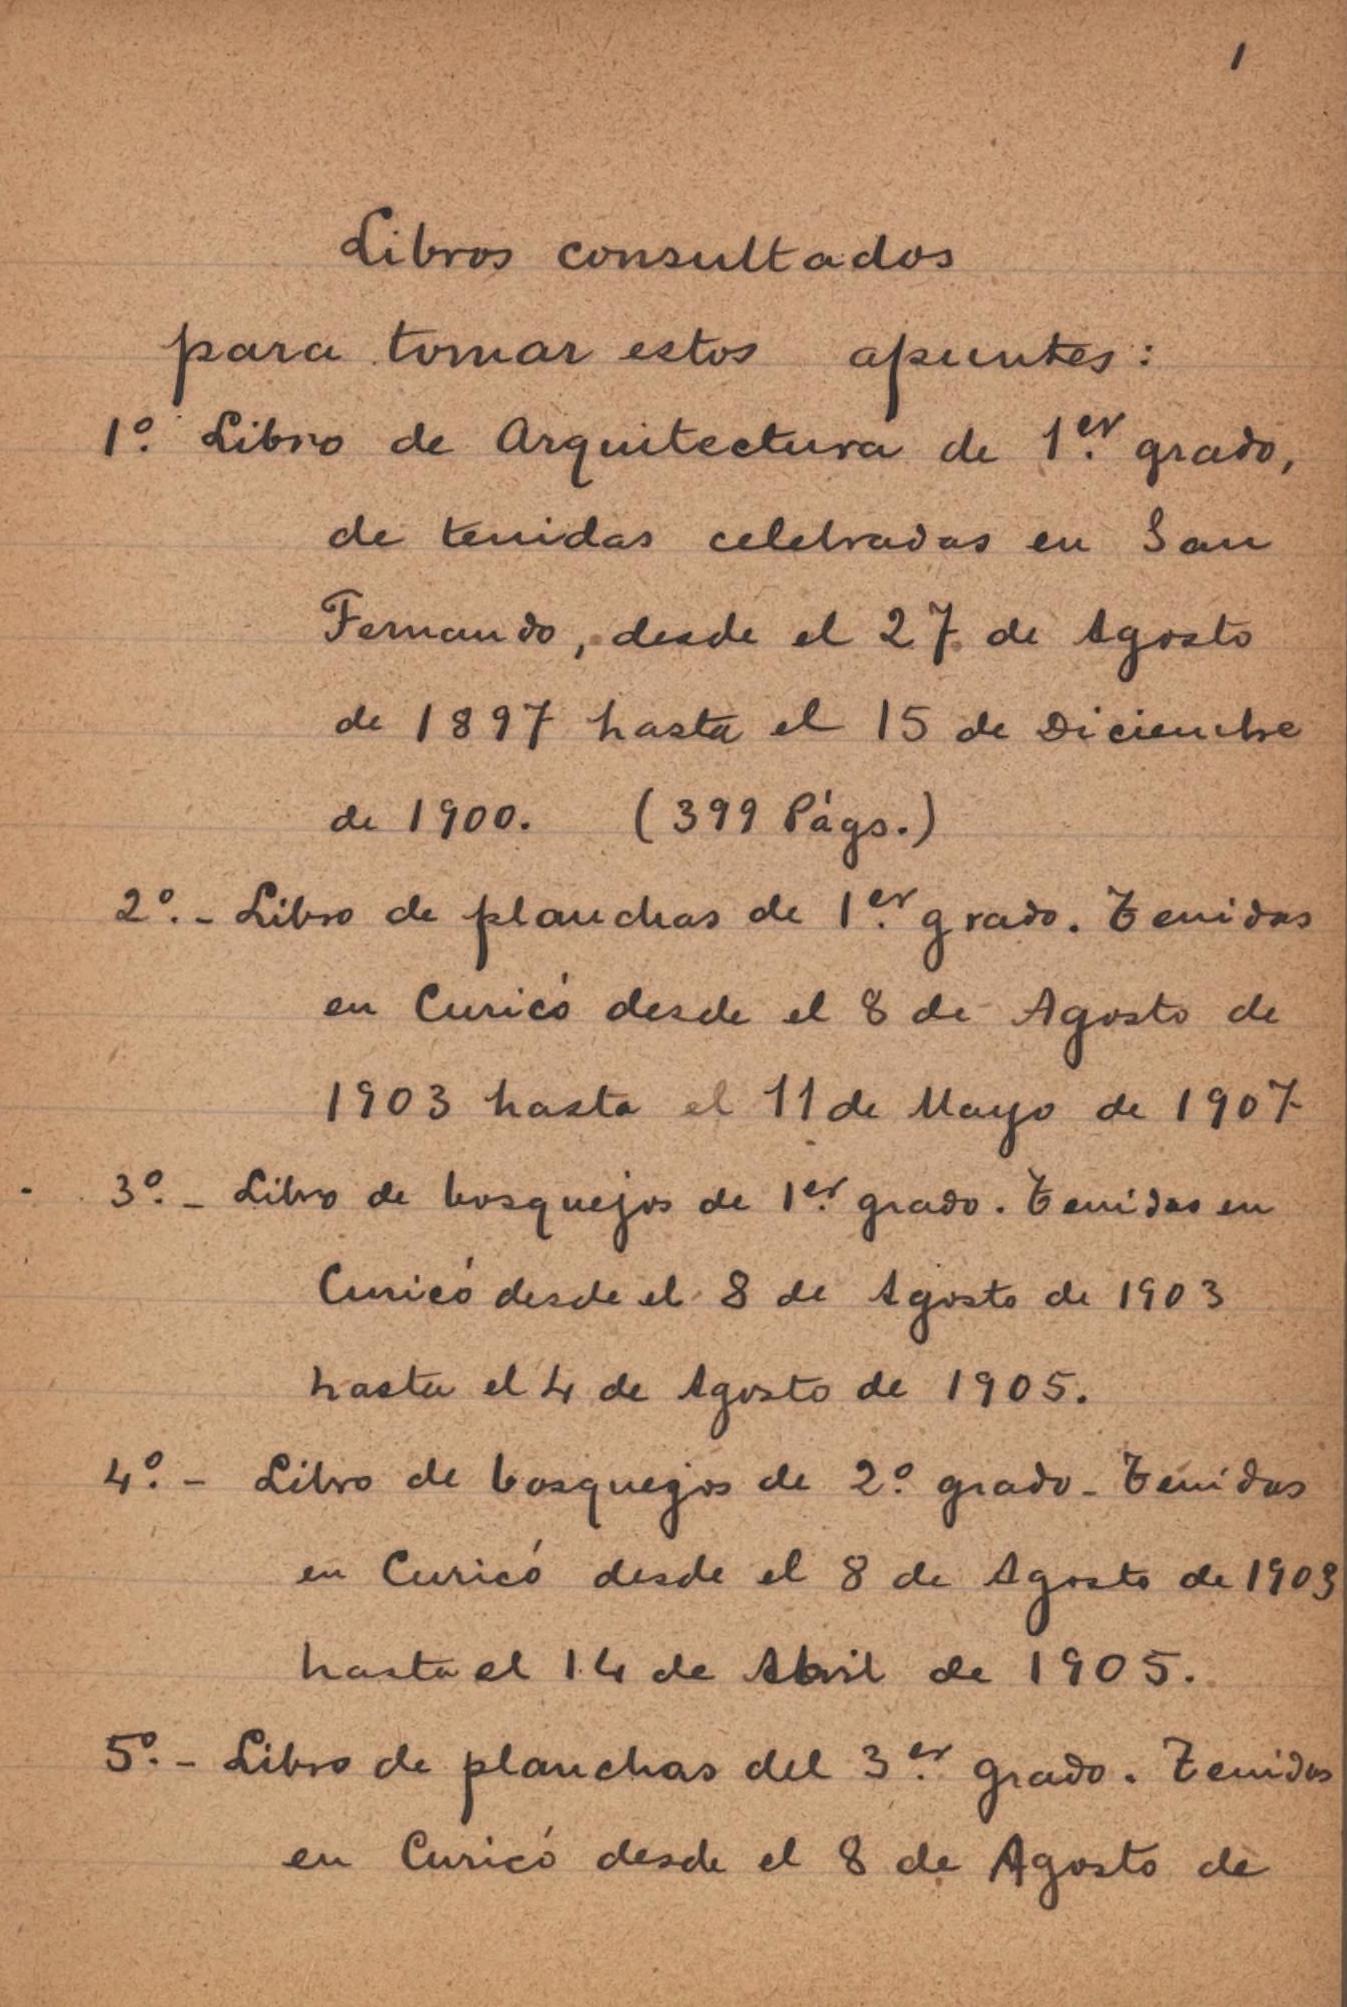 1
Libros consultados
para tomar estos apuntes:
1º. Libro de Arquitectura de 1.er grado,
de tenidas celebradas en San
Fernando, desde el 27 de Agosto
de 1897 hasta el 15 de Diciembre
de 1900. (399 Págs.)
2º.- Libro de planchas de 1.er grado. Tenidas
en Curicó desde el 8 de Agosto de
1903 hasta el 11 de Mayo de 1907
3º.- Libro de bosquejos de 1.er grado. Tenidas en
Curicó desde el 8 de Agosto de 1903
hasta el 4 de Agosto de 1905.
4º.- Libro de bosquejos de 2.º grado - Tenidas
en Curicó desde el 8 de Agosto de 1903
hasta el 14 de Abril de 1905.
5º.- Libro de planchas del 3.er grado. Tenidas
en Curicó desde el 8 de Agosto de